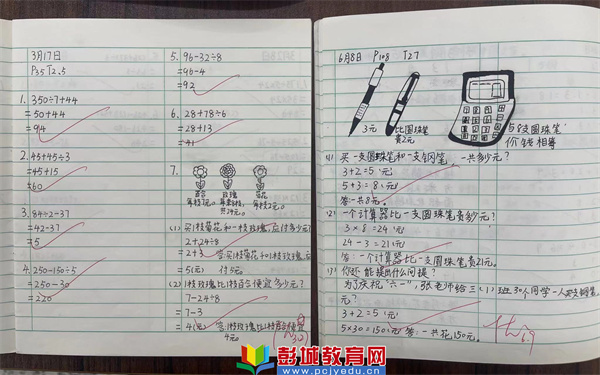 3月17日
P35 T2.5
1. 350÷7+44
=50+44
=94
2. 45+45÷3
=45+15
=60
3. 84÷2-37
=42-37
=5
4. 250-150÷5
=250-30
=220
5. 96-32÷8
=96-4
=92
6. 28+78÷6
=28+13
=41
7.
百合
每枝7元。
玫瑰
共24元。
菊花
每枝2元。
(1) 买1枝菊花和一枝玫瑰,应付多少元?
2+24÷8
=2+3
=5(元)
付5元
(2) 1枝玫瑰比1枝百合便宜多少元?
7-24÷8
=7-3
=4(元)
4元
6月8日 P108 T27
3元
比圆珠笔
贵2元
与8支圆珠笔
价钱相等
(1) 买一支圆珠笔和一支钢笔,一共多少元?
3+2=5(元)
5+3=8(元)
答:一共8元。
(2) 一个计算器比一支圆珠笔贵多少元?
3×8=24(元)
24-3=21(元)
答:一个计算器比一支圆珠笔贵21元。
(3) 你还能提出什么问题?
为了庆祝“六一”,张老师给三(1)班30个同学一人买支钢笔,
元?
3+2=5(元)
5×30=150(元) 答:一共花150元。
优
6.9
彭城教育网
www.pcjyedu.cn